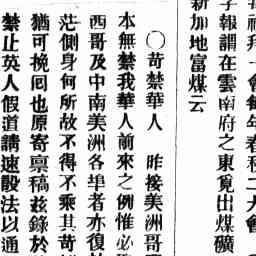 禮拜一會每年春秋二大會
字報謂在雲南府之東覓出煤礦
新加地富煤云
○苛禁華人 昨接美洲哥
本無禁我華人前來之例惟必
西哥及中南美洲各埠者亦復
茫側身何所故不得不乘其苛
猶可挽囘也原寄稟稿茲錄於
禁止英人假道請速設法以通